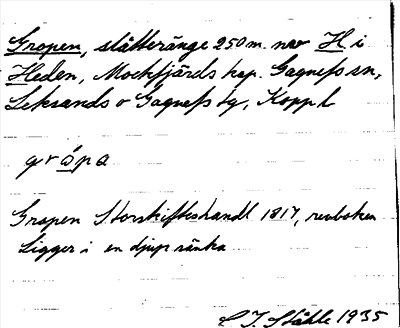 Gropen, slåtteränge 250 m. nov H i
Heden, Mockfjärds kap. Gagnefs sn,
Leksands o Gagnefs tg, Koppl
gropa
Gropen Storskifteshandl 1817, renboken
Ligger i en djup sänka
C I. Ståhle 1935